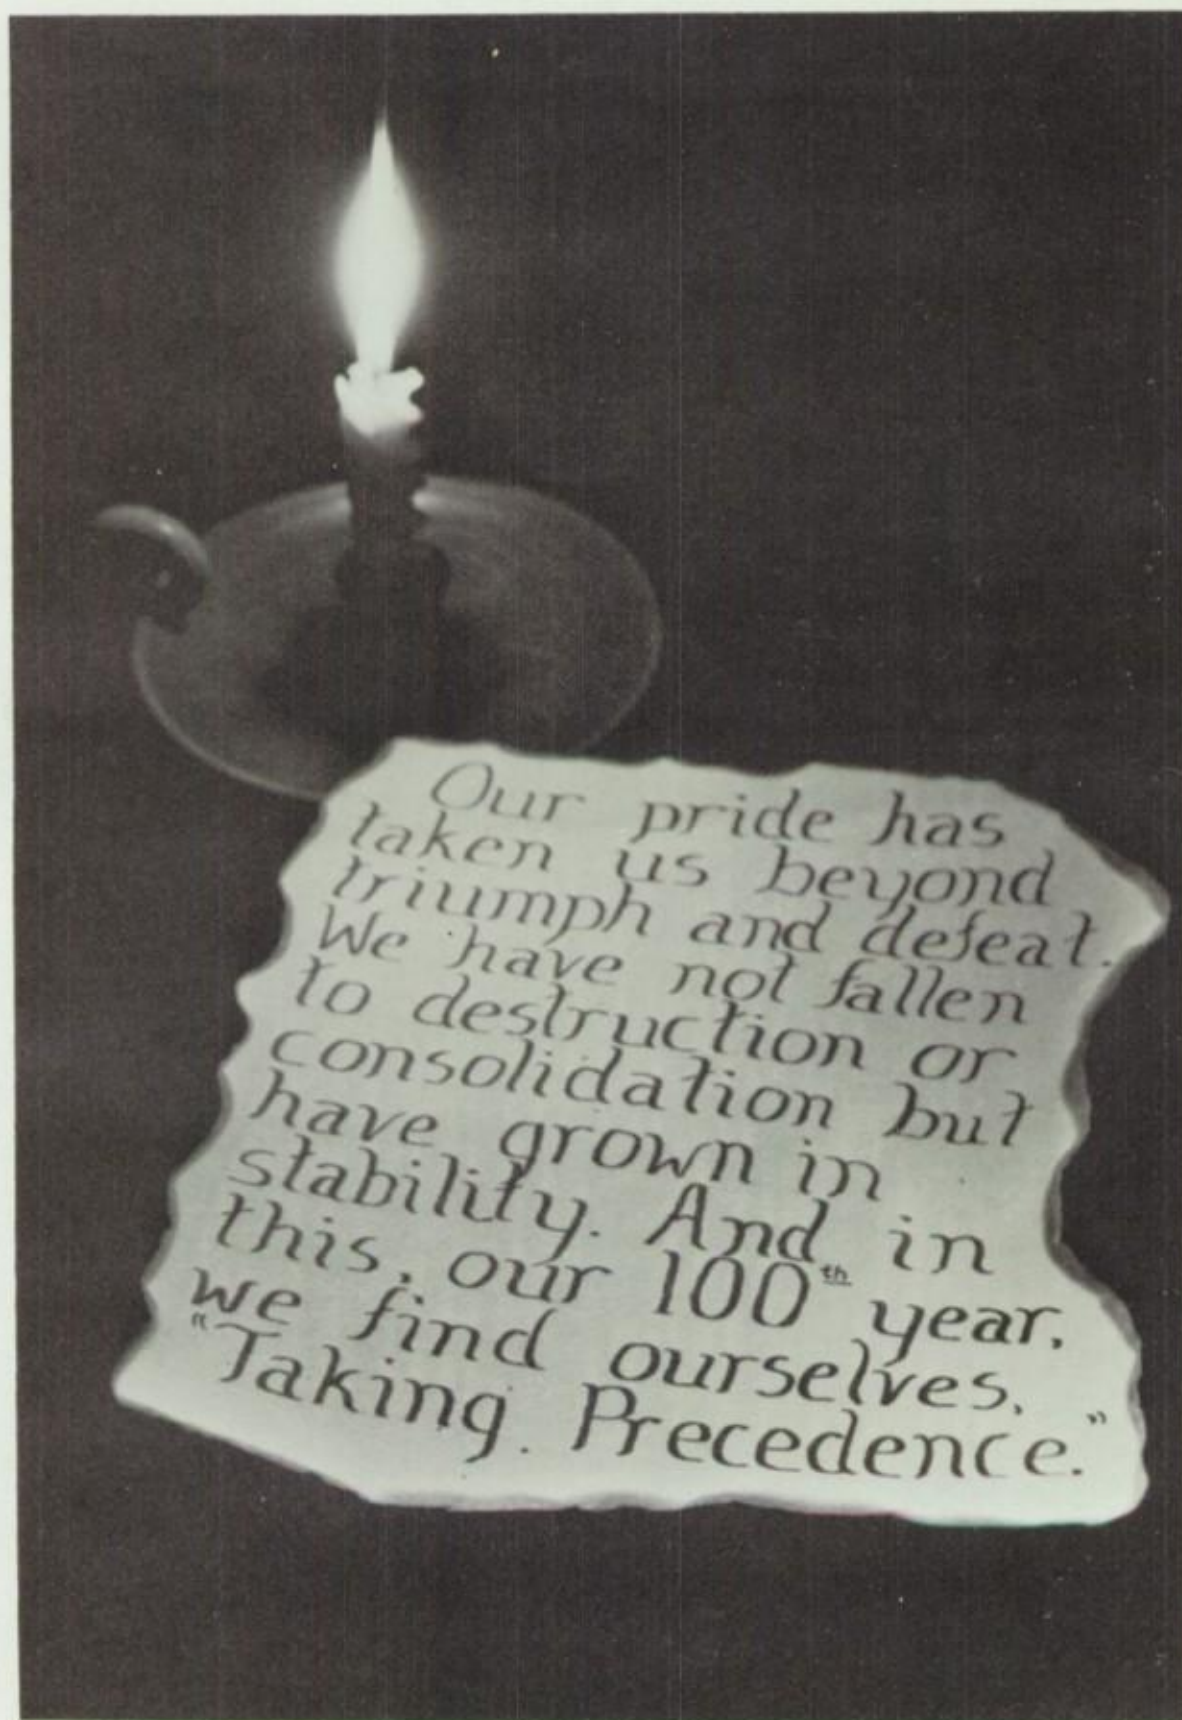 Our pride has
taken us beyond
triumph and defeat.
We have not fallen
to destruction or
consolidation but
have grown in
stability. And in
this, our 100th year,
we find ourselves,
"Taking Precedence."